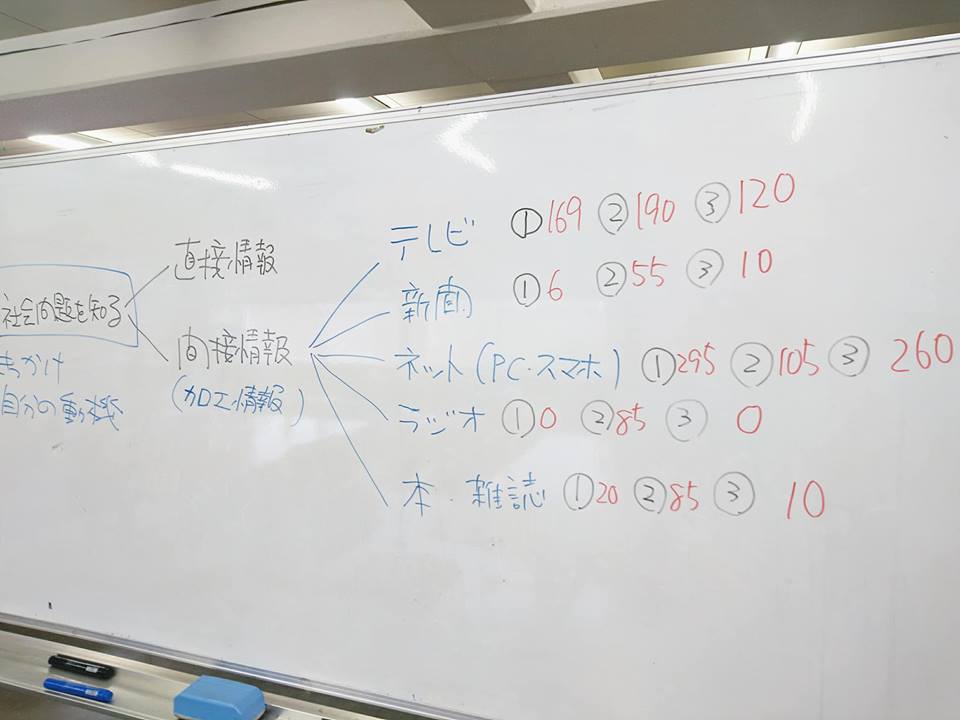 テレビ ①169 ②190 ③120
直接情報
新聞 ①6 ②55 ③10
社会問題を知る
間接情報
(加工情報)
ネット(PC・スマホ) ①295 ②105 ③260
きっかけ
自分の動機
ラジオ ①0 ②85 ③0
本・雑誌 ①20 ②85 ③10